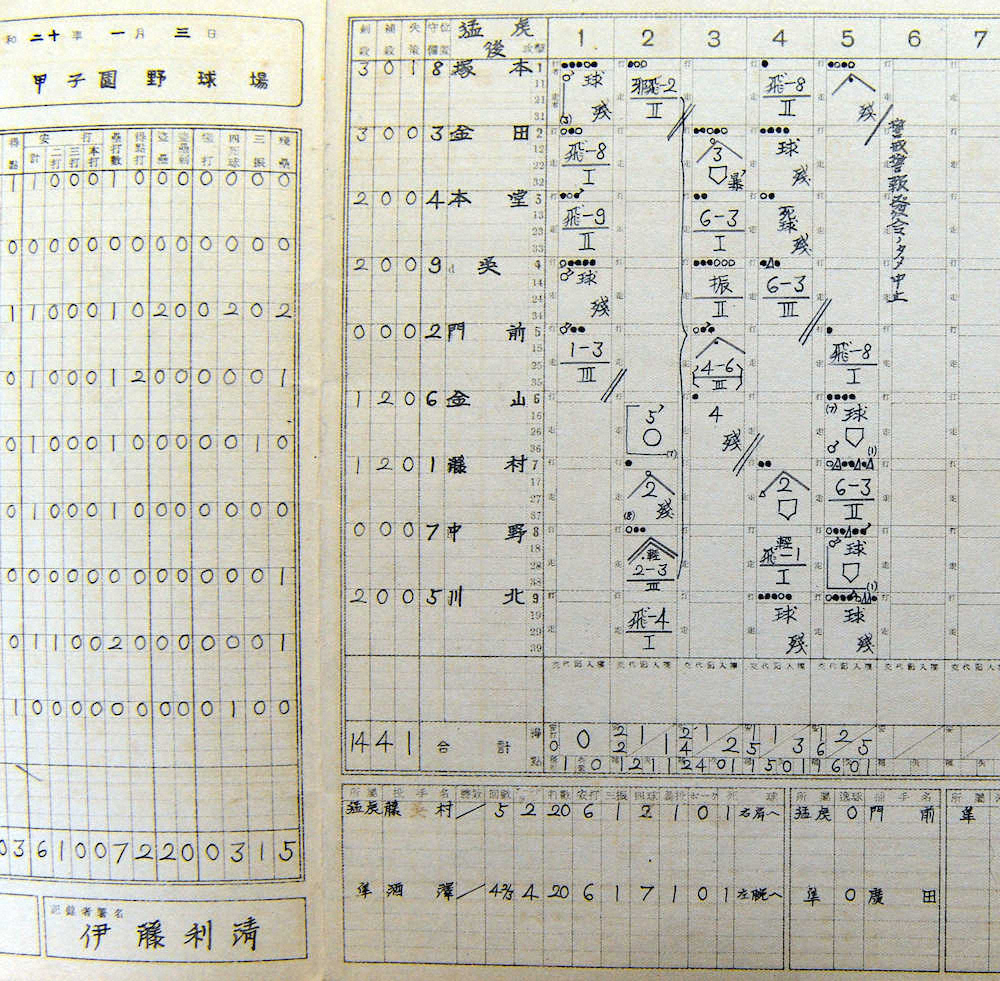 和 二十 年 一 月 三 日
甲子園野球場
得點 安打 計 二打 三打 本打 壘打數 得點打 盜壘 盜壘刺 犠打 四死球 三振 殘壘
1 1 0 0 0 1 0 0 0 0 0 0 0
0 0 0 0 0 0 0 0 0 0 0 0 0
1 1 0 0 0 1 0 2 0 0 2 0 2
0 1 0 0 0 1 2 0 0 0 0 0 1
0 1 0 0 0 1 0 0 0 0 0 1 0
0 1 0 0 0 1 0 0 0 0 0 0 0
0 0 0 0 0 0 0 0 0 0 0 0 1
0 1 1 0 0 2 0 0 0 0 0 0 1
1 0 0 0 0 0 0 0 0 0 1 0 0
0 3 6 1 0 0 7 2 2 0 0 3 1 5
記錄者署名
伊藤利淸
刺殺 補殺 失策 守備位置 猛虎 後 攻擊 1 2 3 4 5 6 7
3 0 1 8 塚本 1 球 殘 邪飛-2 II 飛-8 II 殘
3 0 0 3 金田 2 飛-8 I 3 暴 球 殘
2 0 0 4 本堂 3 飛-9 II 6-3 I 死球 殘
2 0 0 9 呉 4 球 殘 振 II 6-3 III
0 0 0 2 門前 5 1-3 III 4-6 III 飛-8 I
1 2 0 6 金山 6 5 4 殘 (7) 球 (1)
1 2 0 1 藤村 7 2 (8) 殘 2 6-3 II
0 0 0 7 中野 8 軽 2-3 III 軽飛-1 I 球 (1)
2 0 0 5 川北 9 飛-4 I 球 殘 球 殘
警戒警報發令ノタメ中止
交代記入欄 交代記入欄 交代記入欄 交代記入欄 交代記入欄 交代記入欄 交代記入欄
14 4 1 合計 得點
所屬 投手名 回數 打數 安打 三振 四球 暴投 ボーク 死球 所屬 逸球 捕手名 所屬
猛虎 藤村 5 2 20 6 1 2 1 0 1 右肩へ 猛虎 0 門前 隼
隼 酒澤 4 2/3 4 20 6 1 7 1 0 1 左腕へ 隼 0 廣田